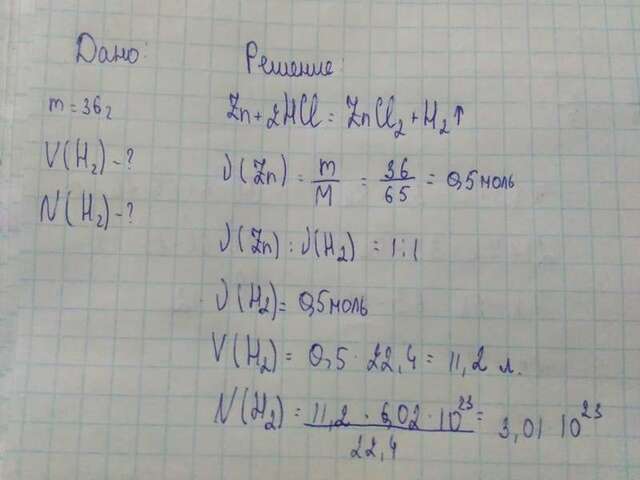 Дано:
m = 36г
V(H₂) - ?
N(H₂) - ?
Решение:
Zn + 2HCl = ZnCl₂ + H₂↑
ν(Zn) = m/M = 36/65 = 0,5 моль
ν(Zn) : ν(H₂) = 1:1
ν(H₂) = 0,5 моль
V(H₂) = 0,5 · 22,4 = 11,2 л.
N(H₂) = 11,2 · 6,02 · 10²³/22,4 = 3,01 · 10²³